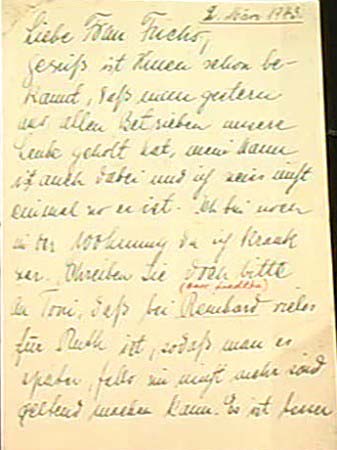 2. März 1943.
Liebe Frau Fuchs,
gewiß ist Ihnen schon be-
kannt, daß man gestern
aus allen Betrieben unsere
Leute geholt hat, mein Mann
ist auch dabei und ich weiss nicht
einmal wo er ist. Ich bin noch
in der Wohnung da ich Krank
war. Schreiben Sie doch bitte
an Toni, daß bei Rembard vieles
für Ruth ist, sodaß man es
später, falls wir nicht mehr sind
geltend machen kann. Es ist besser